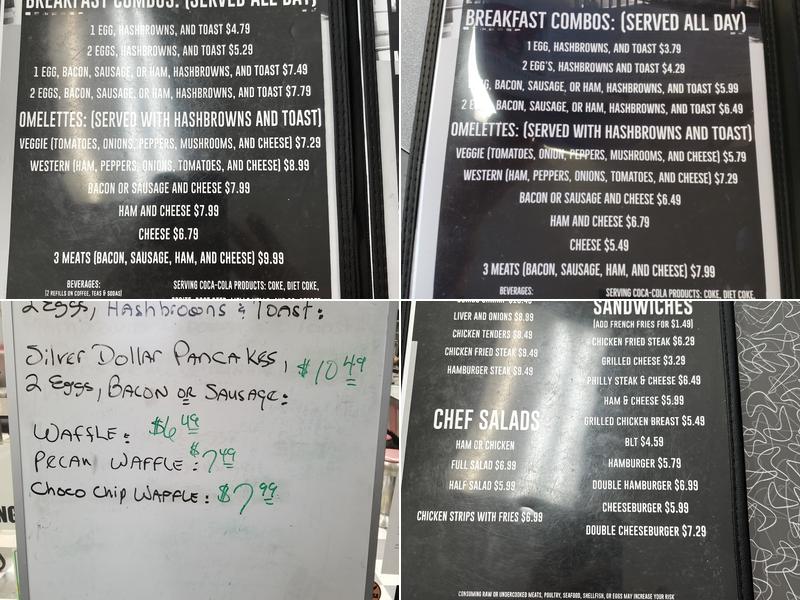 BREAKFAST COMBOS: (SERVED ALL DAY)
1 EGG, HASHBROWNS, AND TOAST $4.79
2 EGGS, HASHBROWNS, AND TOAST $5.29
1 EGG, BACON, SAUSAGE, OR HAM, HASHBROWNS, AND TOAST $7.49
2 EGGS, BACON, SAUSAGE, OR HAM, HASHBROWNS, AND TOAST $7.79
OMELETTES: (SERVED WITH HASHBROWNS AND TOAST)
VEGGIE (TOMATOES, ONIONS, PEPPERS, MUSHROOMS, AND CHEESE) $7.29
WESTERN (HAM, PEPPERS, ONIONS, TOMATOES, AND CHEESE) $8.99
BACON OR SAUSAGE AND CHEESE $7.99
HAM AND CHEESE $7.99
CHEESE $6.79
3 MEATS (BACON, SAUSAGE, HAM, AND CHEESE) $9.99
BEVERAGES:
(2 REFILLS ON COFFEE, TEAS & SODAS)
SERVING COCA-COLA PRODUCTS: COKE, DIET COKE,
BREAKFAST COMBOS: (SERVED ALL DAY)
1 EGG, HASHBROWNS, AND TOAST $3.79
2 EGG'S, HASHBROWNS AND TOAST $4.29
EGG, BACON, SAUSAGE, OR HAM, HASHBROWNS, AND TOAST $5.99
2 BACON, SAUSAGE, OR HAM, HASHBROWNS, AND TOAST $6.49
OMELETTES: (SERVED WITH HASHBROWNS AND TOAST)
VEGGIE (TOMATOES, ONION, PEPPERS, MUSHROOMS, AND CHEESE) $5.79
WESTERN (HAM, PEPPERS, ONIONS, TOMATOES, AND CHEESE) $7.29
BACON OR SAUSAGE AND CHEESE $6.49
HAM AND CHEESE $6.79
CHEESE $5.49
3 MEATS (BACON, SAUSAGE, HAM, AND CHEESE) $7.99
BEVERAGES:
SERVING COCA-COLA PRODUCTS: COKE, DIET COKE,
2 Eggs, Hashbrowns & Toast:
Silver Dollar Pancakes, $10.49
2 Eggs, Bacon or Sausage:
Waffle: $6.49
Pecan Waffle: $7.49
Choco Chip Waffle: $7.99
LIVER AND ONIONS $8.99
CHICKEN TENDERS $8.49
CHICKEN FRIED STEAK $9.49
HAMBURGER STEAK $9.49
CHEF SALADS
HAM OR CHICKEN
FULL SALAD $6.99
HALF SALAD $5.99
CHICKEN STRIPS WITH FRIES $6.99
SANDWICHES
(ADD FRENCH FRIES FOR $1.49)
CHICKEN FRIED STEAK $6.29
GRILLED CHEESE $3.29
PHILLY STEAK & CHEESE $6.49
HAM & CHEESE $5.99
GRILLED CHICKEN BREAST $5.49
BLT $4.59
HAMBURGER $5.79
DOUBLE HAMBURGER $6.99
CHEESEBURGER $5.99
DOUBLE CHEESEBURGER $7.29
CONSUMING RAW OR UNDERCOOKED MEATS, POULTRY, SEAFOOD, SHELLFISH, OR EGGS MAY INCREASE YOUR RISK